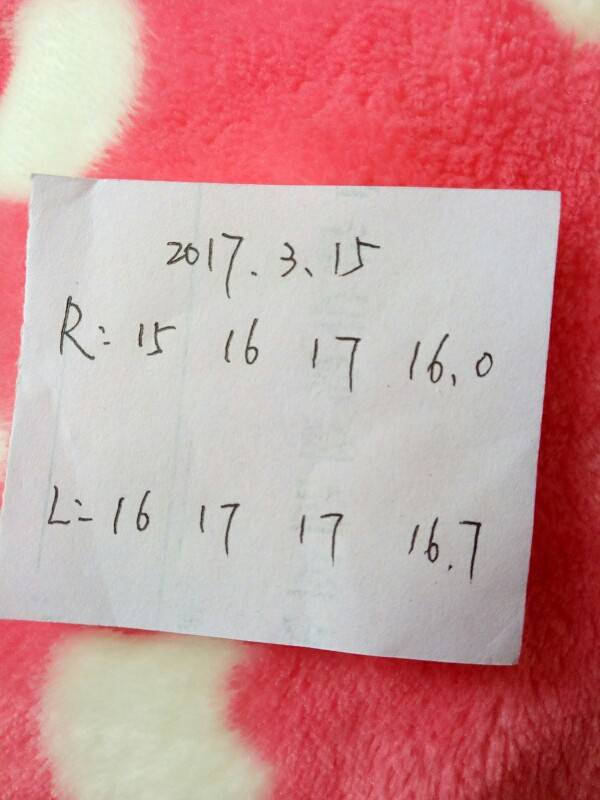 2017.3.15
R: 15 16 17 16.0
L: 16 17 17 16.7